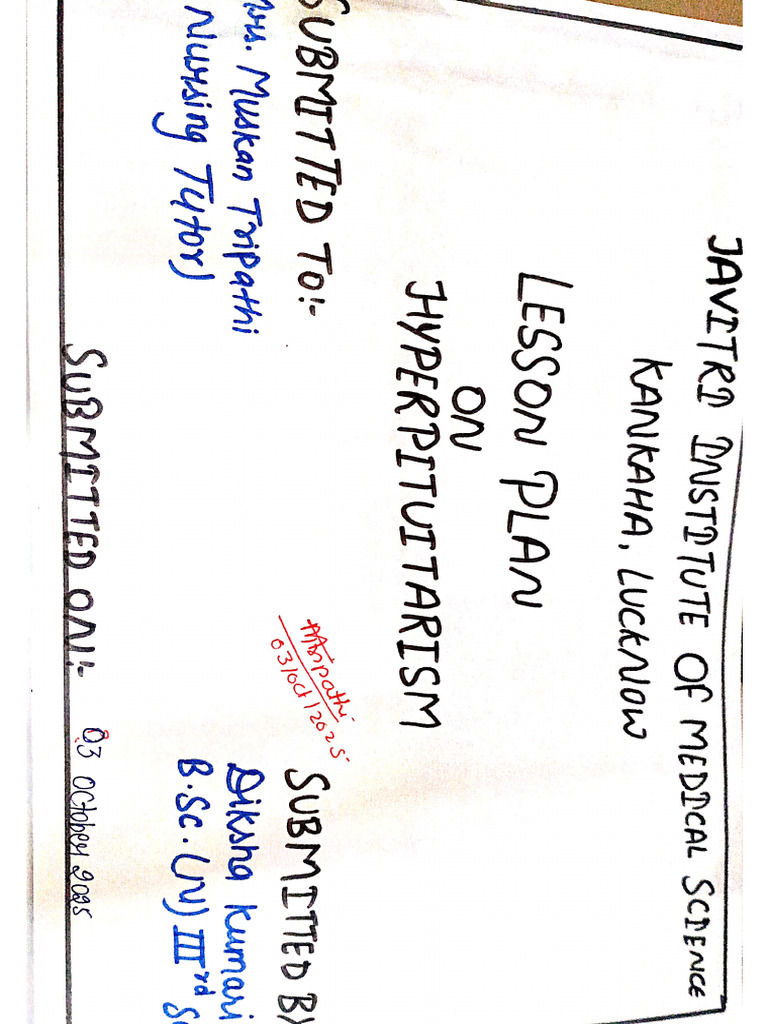 JAVITRI INSTITUTE OF MEDICAL SCIENCE
KANKAHA, LUCKNOW
LESSON PLAN
ON
HYPERPITUITARISM
SUBMITTED TO:-
Mrs. Muskan Tripathi
Nursing Tutor)
Tripathi
03/Oct/2025
SUBMITTED BY
Diksha Kumari
B.Sc. (N) IIIrd S
SUBMITTED ON:- 03 October 2025